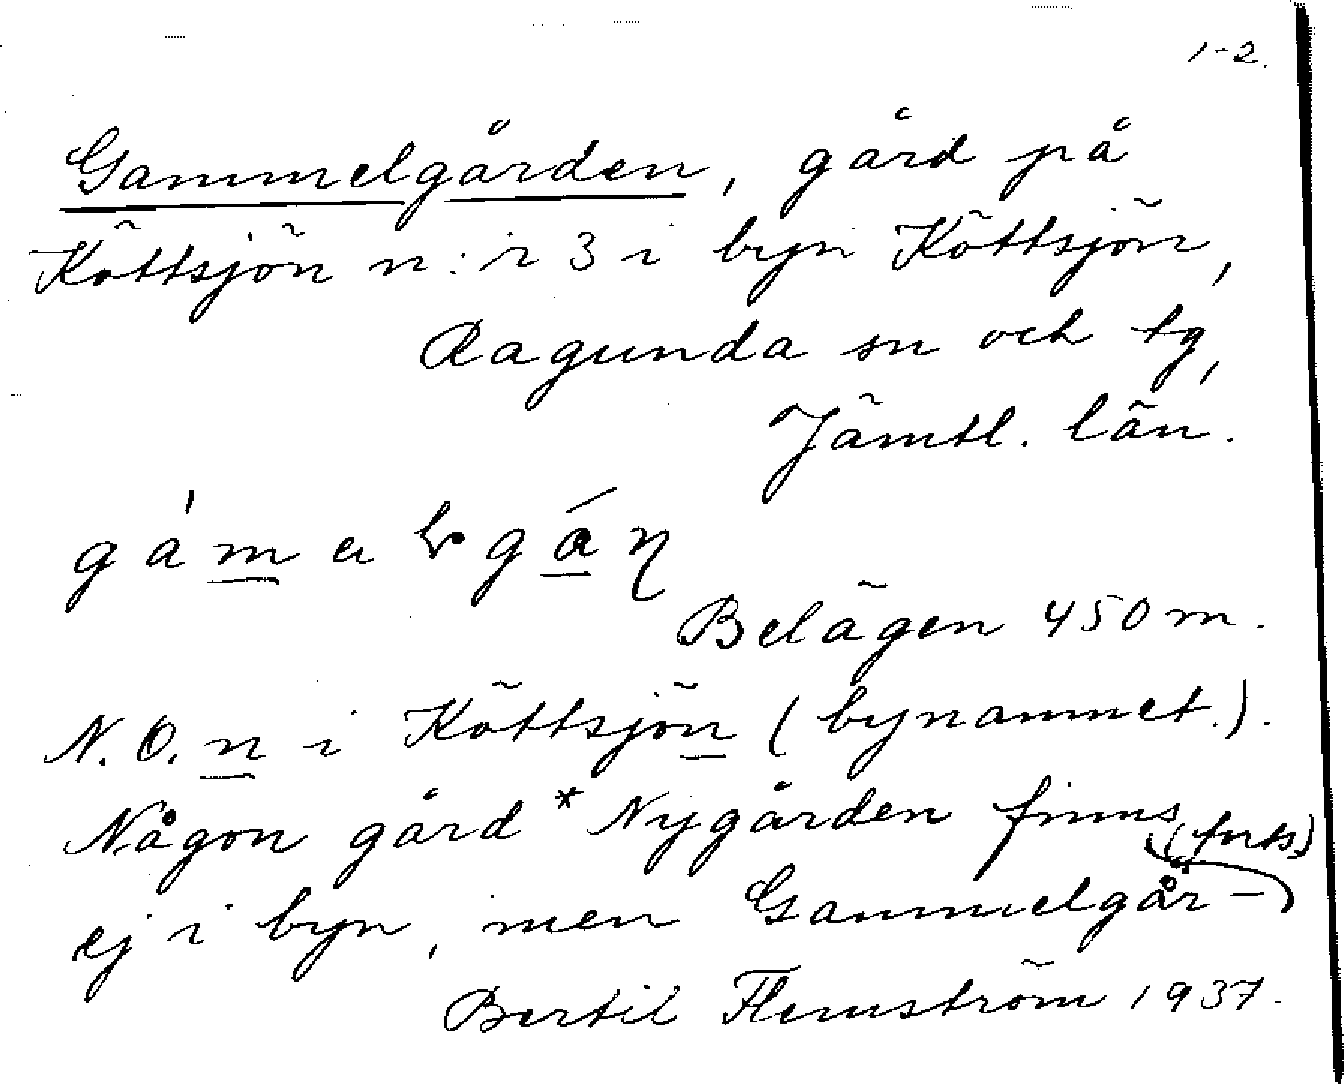 1-2.
Gammelgården, gård på
Köttsjön n:r 3 i byn Köttsjön,
Ragunda sn och tg,
Jämtl. län.
Belägen 450 m.
N.O. n i Köttsjön (bynamnet.).
Någon gård * Nygården finns
(forts)
ej i byn, men Gammelgår-
Bertil Flemström 1937.